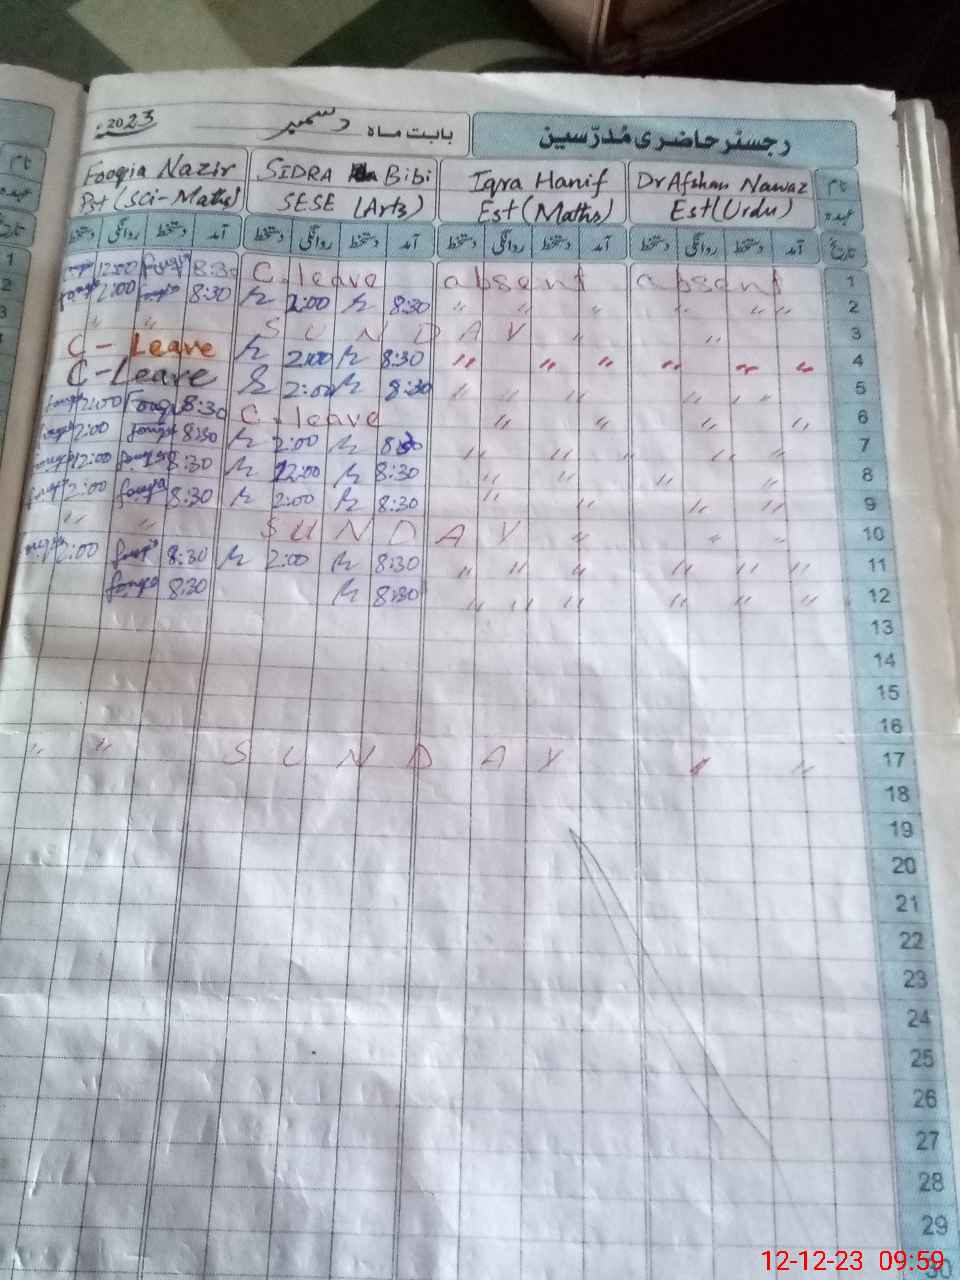 رجسٹر حاضری مُدرّسین بابت ماہ دسمبر 2023
نام Dr Afshan Nawaz Iqra Hanif SIDRA Bibi Fooqia Nazir
عہدہ Est (Urdu) Est (Maths) SESE (Arts) Pst (Sci-Maths)
تاریخ آمد دستخط روانگی دستخط آمد دستخط روانگی دستخط آمد دستخط روانگی دستخط آمد دستخط روانگی دستخط
12:00 8:30 C-leave absent absent 1
2:00 8:30 2:00 8:30 " " " " " " 2
" " SUNDAY " " 3
C-Leave 2:00 8:30 " " " " " " 4
C-Leave 2:00 8:30 " " " " " " 5
2:00 8:30 C-leave " " " " 6
2:00 8:30 2:00 8:30 " " " " " 7
12:00 8:30 12:00 8:30 " " " " 8
2:00 8:30 2:00 8:30 " " " " 9
" " SUNDAY " " " 10
2:00 8:30 2:00 8:30 " " " " " " 11
8:30 8:30 " " " " " " 12
13
14
15
16
" " SUNDAY " " 17
18
19
20
21
22
23
24
25
26
27
28
29
30
12-12-23 09:59